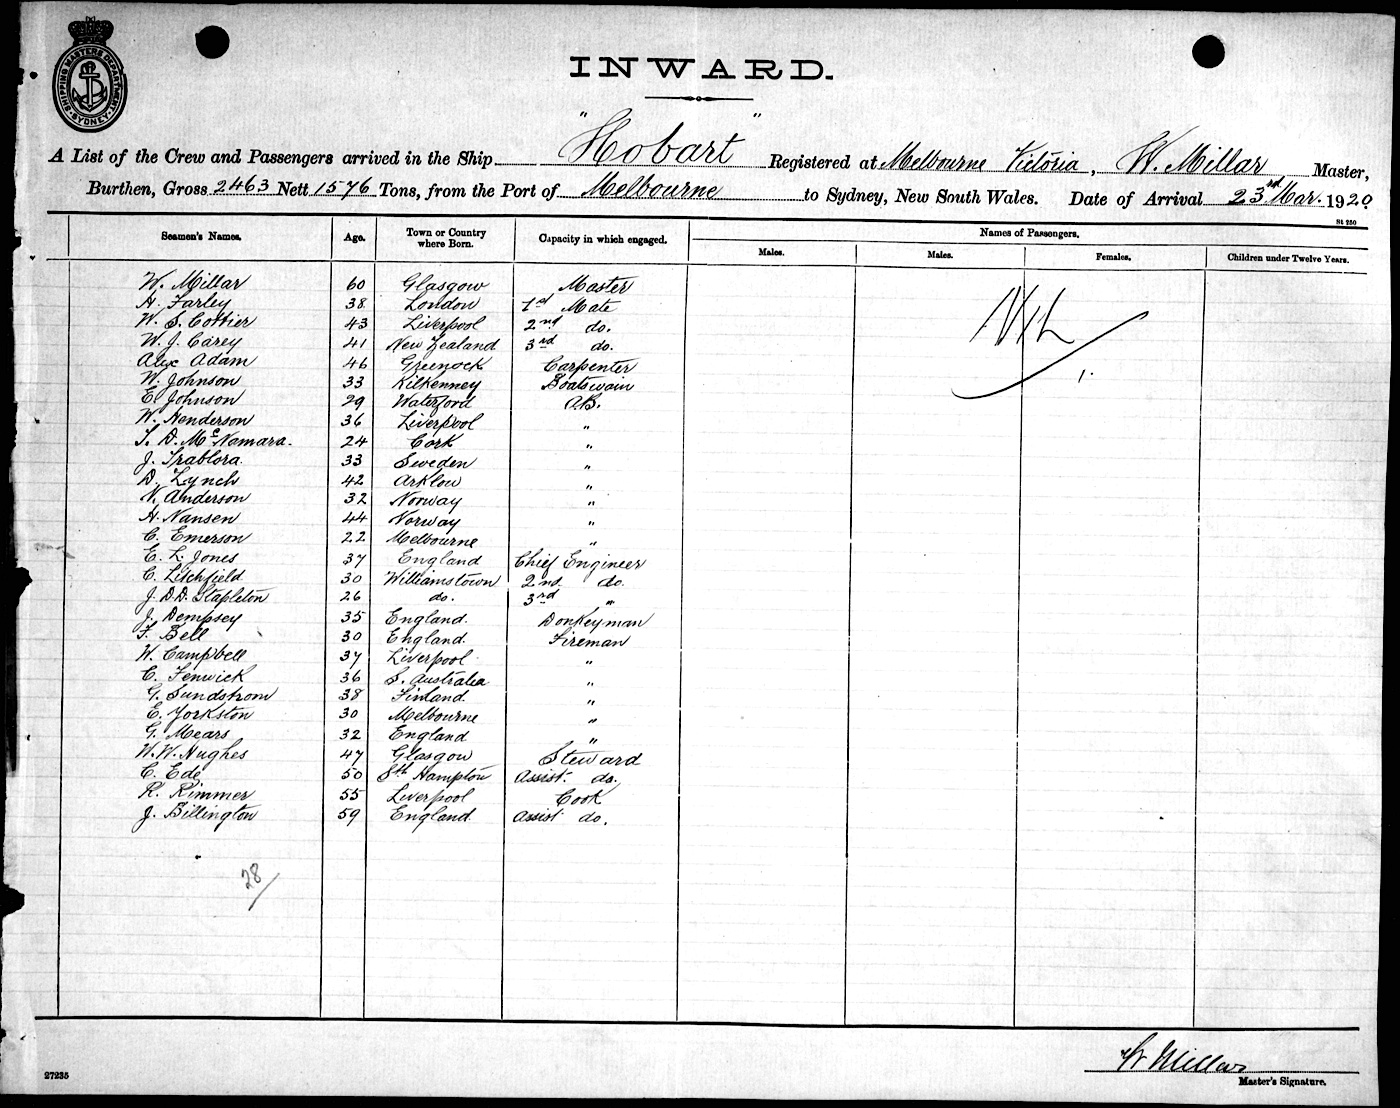 SHIPPING MASTERS DEPARTMENT. SYDNEY.
INWARD.
A List of the Crew and Passengers arrived in the Ship "Hobart" Registered at Melbourne Victoria, W. Millar Master,
Burthen, Gross 2463 Nett 1576 Tons, from the Port of Melbourne to Sydney, New South Wales. Date of Arrival 23rd Mar. 1920
St 250
Seamen's Names. Age. Town or Country where Born. Capacity in which engaged. Names of Passengers.
Males. Males. Females. Children under Twelve Years.
W. Millar 60 Glasgow Master
H. Farley 38 London 1st Mate
W. S. Cottier 43 Liverpool 2nd do.
W. J. Carey 41 New Zealand 3rd do.
Alex Adam 46 Greenock Carpenter
W. Johnson 33 Kilkenney Boatswain
E. Johnson 29 Waterford A.B.
W. Henderson 36 Liverpool "
T. D. McNamara. 24 Cork "
J. Trablora. 33 Sweden "
D. Lynch 42 Arklow "
N. Anderson 32 Norway "
H. Nansen 44 Norway "
C. Emerson 22 Melbourne "
E. L. Jones 37 England Chief Engineer
C. Litchfield 30 Williamstown 2nd do.
J. D.D. Stapleton 26 do. 3rd "
J. Dempsey 35 England. Donkeyman
F. Bell 30 England. Fireman
W. Campbell 37 Liverpool "
C. Fenwick 36 S. Australia "
G. Sundstrom 38 Finland. "
E. Yorkston 30 Melbourne "
G. Mears 32 England "
W. W. Hughes 47 Glasgow Steward
C. Ede 50 Sth Hampton Assist. do.
R. Rimmer 55 Liverpool Cook
J. Billington 59 England. Assist do.
Nil
28/
W Millar
Master's Signature.
27235